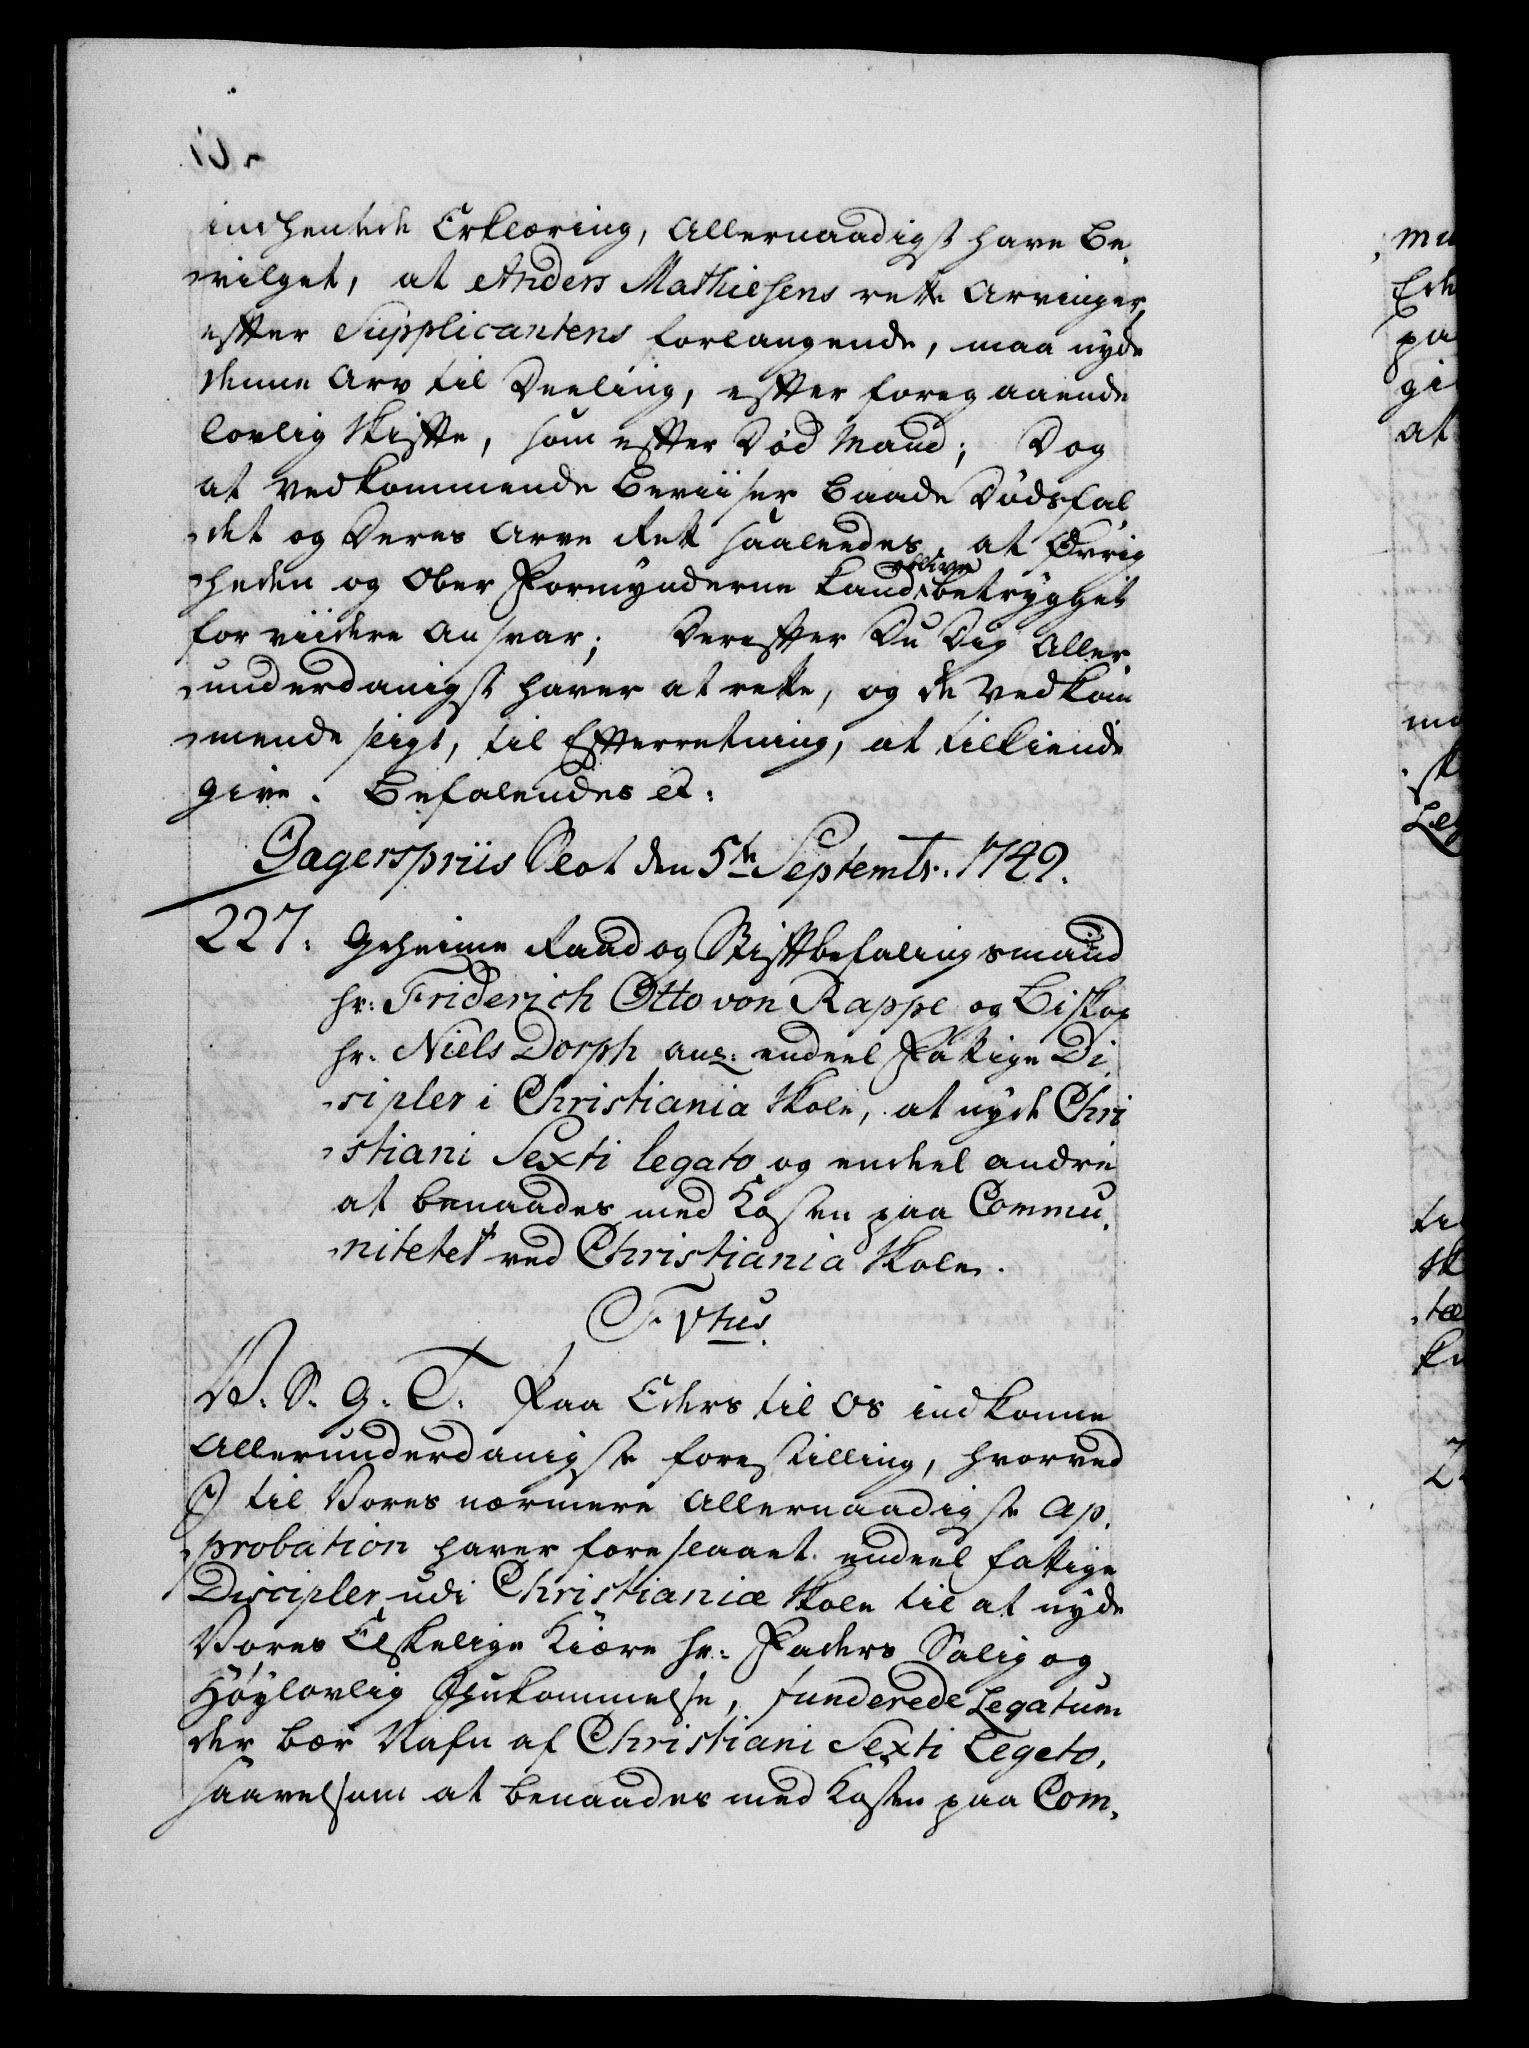 indhentede Erklæring, Allernaadigst have be,
vilget, at Anders Mathiesens rette Arvinger,
efter Supplicantens forlangende, maa nyde
denne Arv til Deeling, efter foregaaende
lovlig Skifte, som efter Død Mand; Dog
at vedkommende beviiser baade Dødsfal
det og Deres Arve Rett saaledes, at Øvrig
heden og Ober Formynderne kand blive betrygget
for viidere Ansvar; Derefter Du Dig Aller,
underdanigst haver at rette, og de vedkom
mende sligt, til Efterretning, at tilkiende
give. Befalendes etc:
Jagerspriis Slot den 5te Septembr. 1749.
227. Geheime Raad og Stiftbefalingsmand
hr: Friderich Otto von Rappe og Biskop
hr. Niels Dorph ang: endeel Fattige Di,
sipler i Christiania Skole, at nyde Chri
stiani Sexti legato og endeel andre
at benaades med Kosten paa Commu,
nitetet ved Christiania Skole.
F. Vtus.
V. S. G. T. Paa Eders til Os indkomne
Allerunderdanigste forestilling, hvorved
I til Vores nærmere Allernaadigste Ap,
probation haver foreslaaet endeel fattige
Discipler udi Christianiæ Skole til at nyde
Vores Elskelige Kiære hr: Faders Salig og
Høylovlig Ihukommelse, funderede Legatum
der bær Nafn af Christiani Sexti Legato,
saavelsom at benaades med Kosten paa Com,